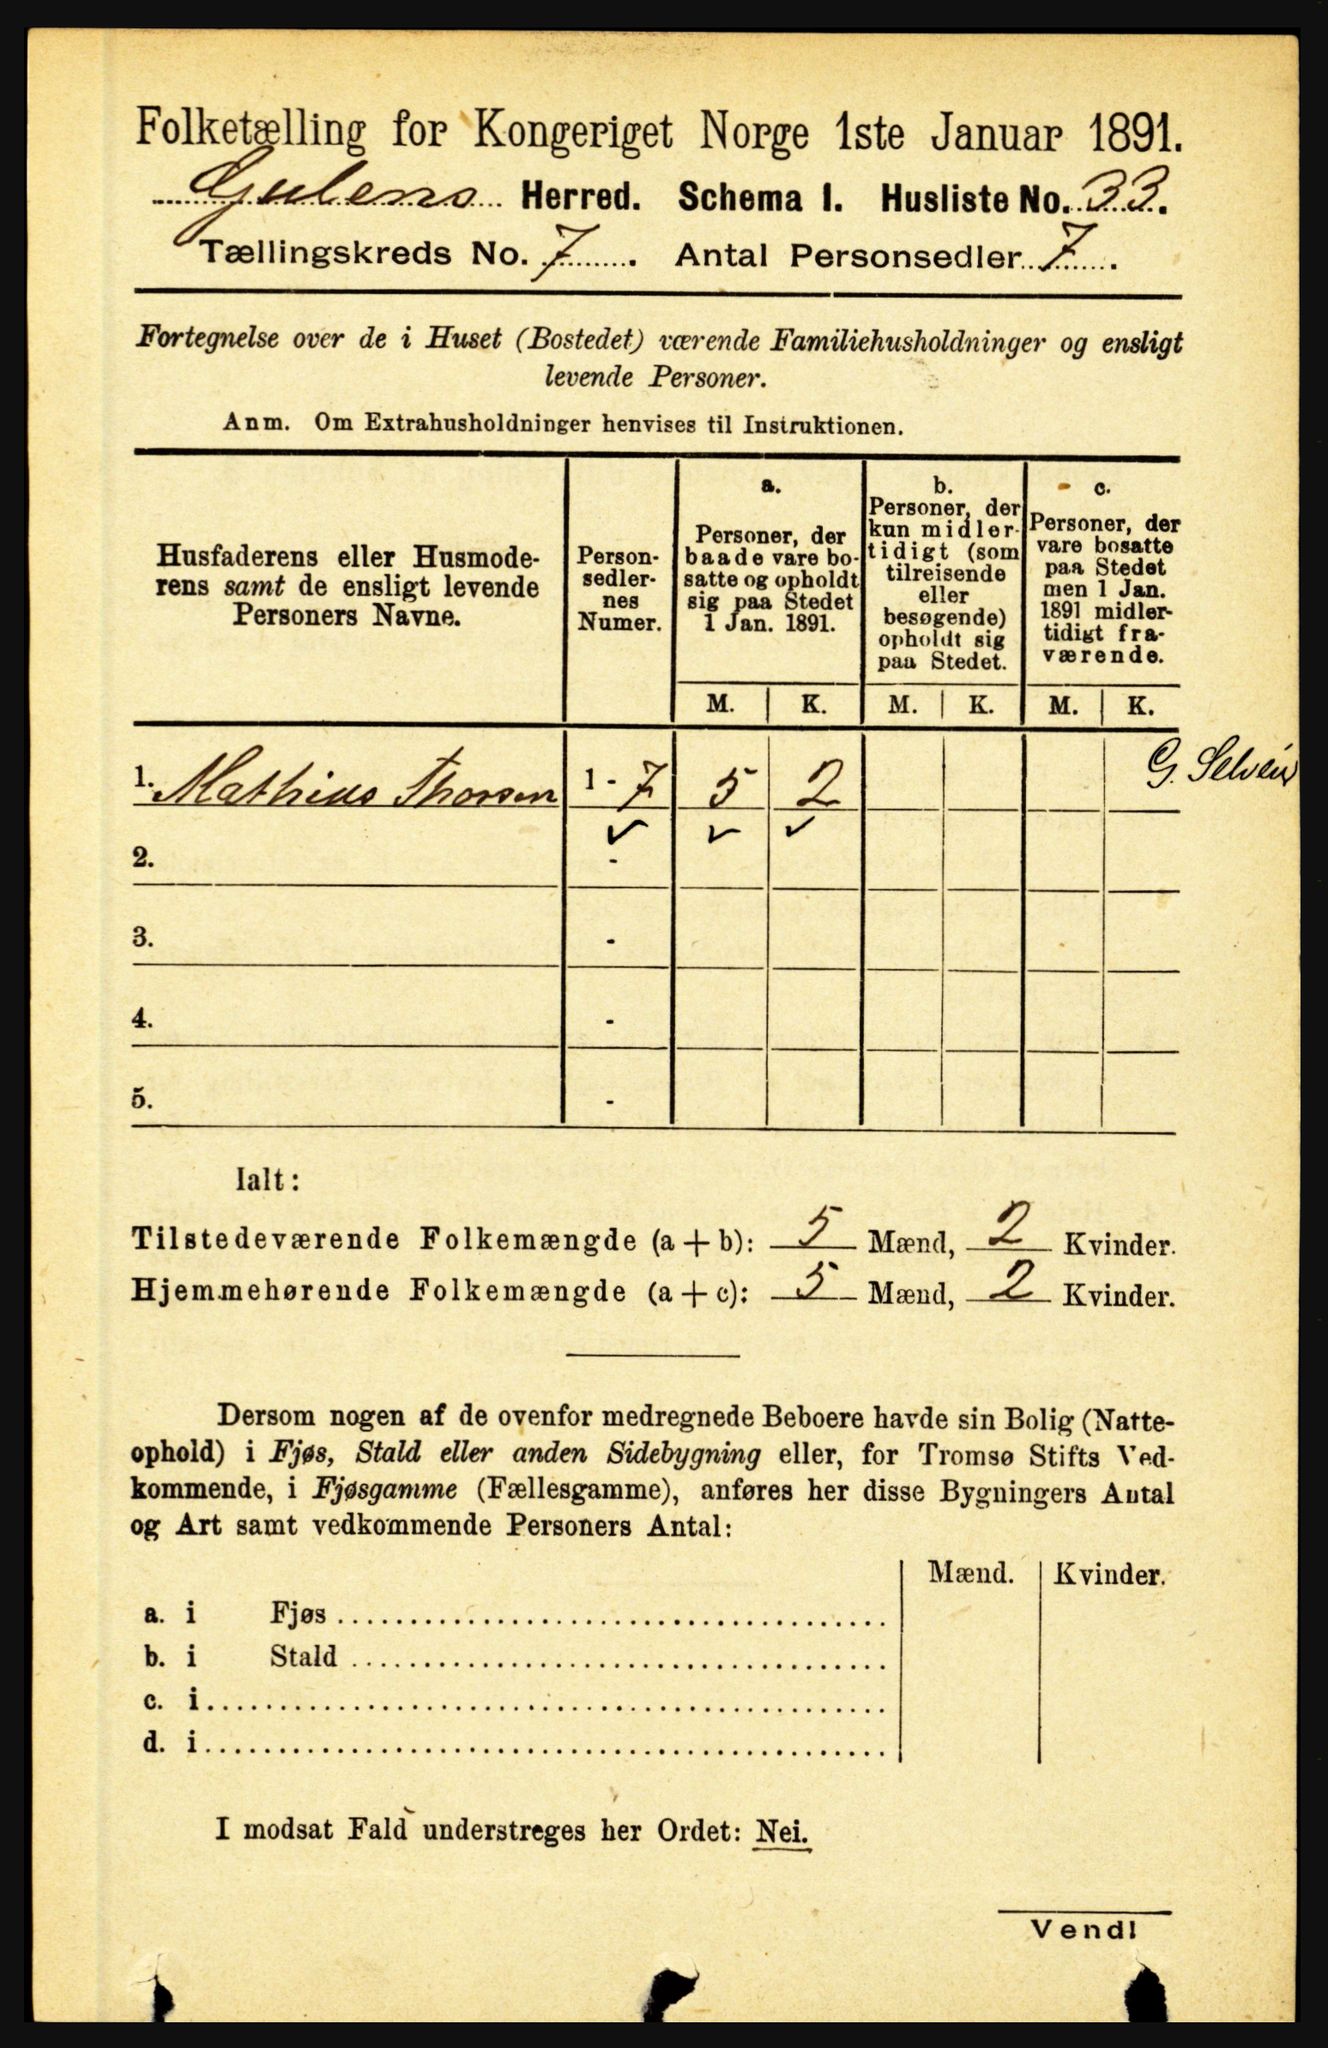 Folketælling for Kongeriget Norge 1ste Januar 1891.
Gulens Herred. Schema I. Husliste No. 33.
Tællingskreds No. 7. Antal Personsedler 7.
Fortegnelse over de i Huset (Bostedet) værende Familiehusholdninger og ensligt
levende Personer.
Anm. Om Extrahusholdninger henvises til Instruktionen.
Husfaderens eller Husmode-
rens samt de ensligt levende
Personers Navne.
Person-
sedler-
nes
Numer.
a.
Personer, der
baade vare bo-
satte og opholdt
sig paa Stedet
1 Jan. 1891.
b.
Personer, der
kun midler-
tidigt (som
tilreisende
eller
besøgende)
opholdt sig
paa Stedet.
c.
Personer, der
vare bosatte
paa Stedet
men 1 Jan.
1891 midler-
tidigt fra-
værende.
M. K. M. K. M. K.
1. Mathias Thorsen 1 - 7 5 2
G.
2. -
3. -
4. -
5. -
Ialt:
Tilstedeværende Folkemængde (a + b): 5 Mænd, 2 Kvinder.
Hjemmehørende Folkemængde (a + c): 5 Mænd, 2 Kvinder.
Dersom nogen af de ovenfor medregnede Beboere havde sin Bolig (Natte-
ophold) i Fjøs, Stald eller anden Sidebygning eller, for Tromsø Stifts Ved-
kommende, i Fjøsgamme (Fællesgamme), anføres her disse Bygningers Antal
og Art samt vedkommende Personers Antal:
Mænd. Kvinder.
a. i Fjøs
b. i Stald
c. i
d. i
I modsat Fald understreges her Ordet: Nei.
Vend!